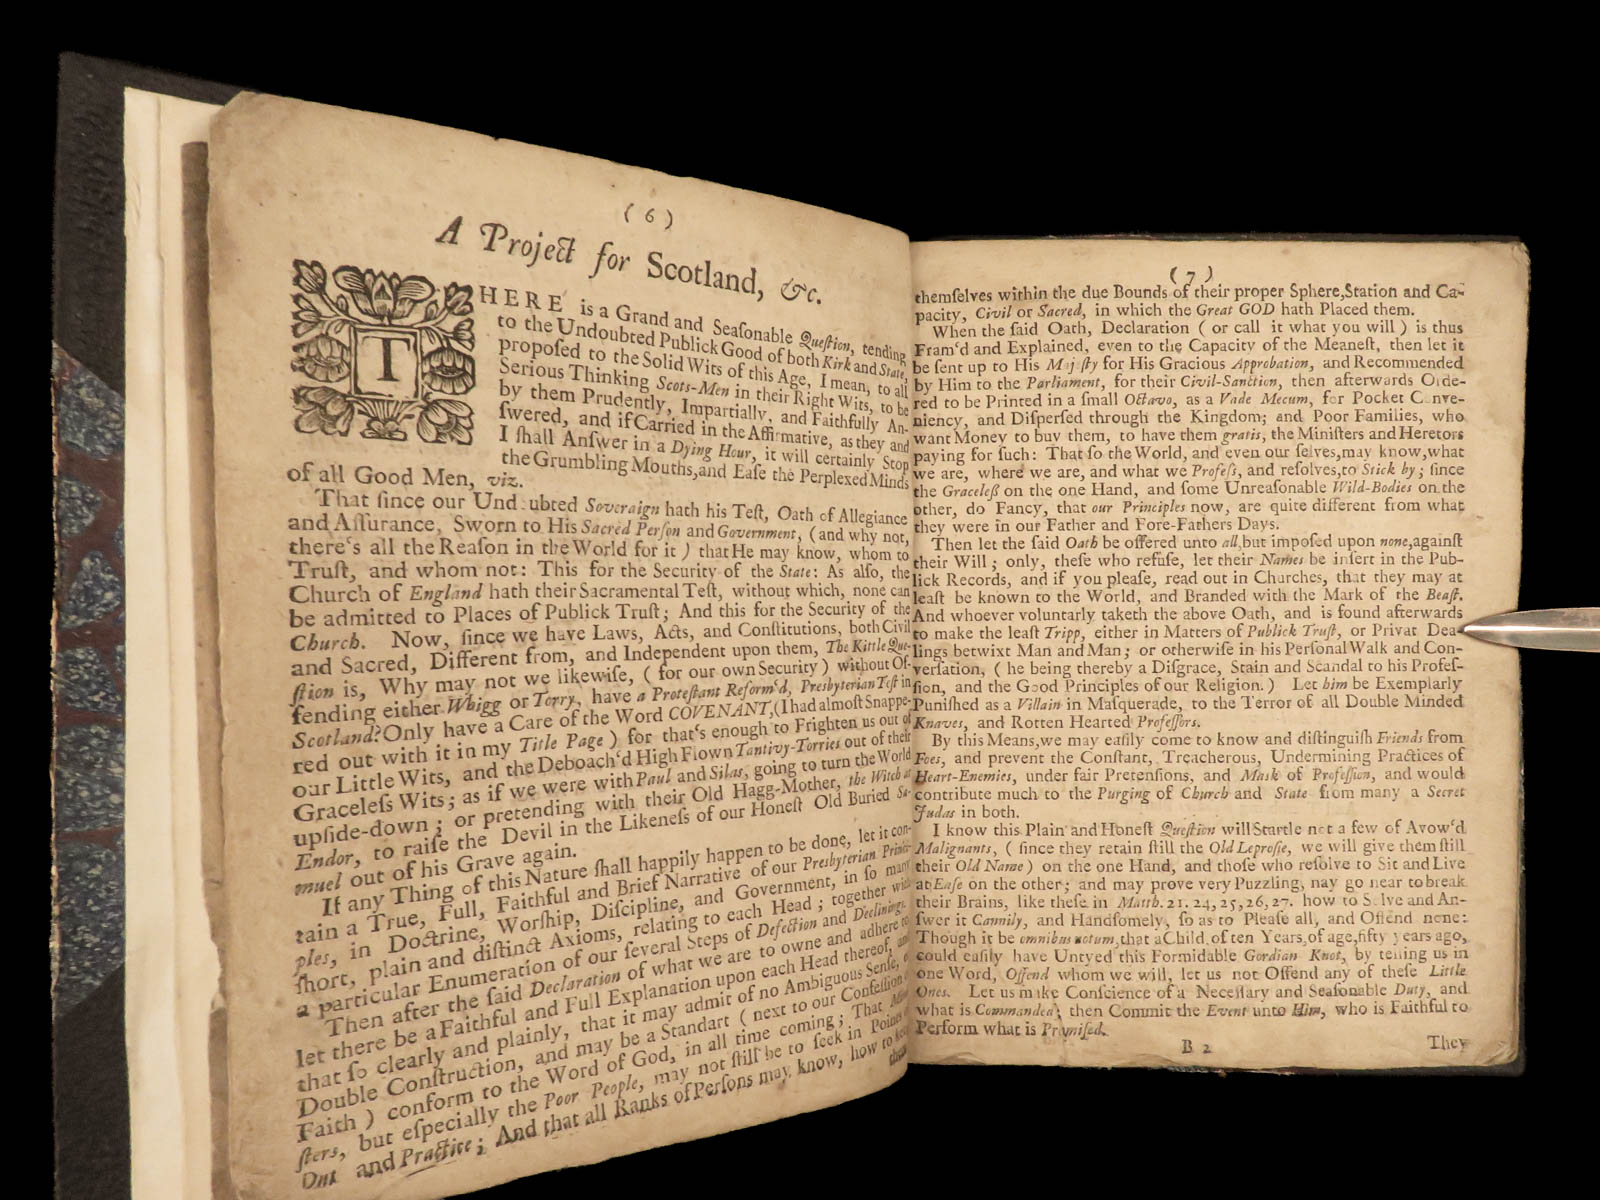 ( 6 )
A Project for Scotland, &c.
THERE is a Grand and Seaſonable Queſtion, tending
to the Undoubted Publick Good of both Kirk and State,
propoſed to the Solid Wits of this Age, I mean, to all
Serious Thinking Scots-Men in their Right Wits, to be
by them Prudently, Impartially, and Faithfully An-
ſwered, and if Carried in the Affirmative, as they and
I ſhall Anſwer in a Dying Hour, it will certainly Stop
the Grumbling Mouths, and Eaſe the Perplexed Minds
of all Good Men, viz.
That ſince our Und ubted Soveraign hath his Teſt, Oath of Allegiance
and Aſſurance, Sworn to His Sacred Perſon and Government, (and why not,
there's all the Reaſon in the World for it ) that He may know, whom to
Truſt, and whom not: This for the Security of the State: As alſo, the
Church of England hath their Sacramental Teſt, without which, none can
be admitted to Places of Publick Truſt; And this for the Security of the
Church. Now, ſince we have Laws, Acts, and Conſtitutions, both Civil
and Sacred, Different from, and Independent upon them, The Kittle Que-
ſtion is, Why may not we likewiſe, ( for our own Security ) without Of-
fending either Whigg or Torry, have a Proteſtant Reform'd, Presbyterian Teſt in
Scotland? Only have a Care of the Word COVENANT, (I had almoſt Snappe-
red out with it in my Title Page ) for that's enough to Frighten us out of
our Little Wits, and the Deboach'd High Flown Tantivy-Torries out of their
Graceleſs Wits; as if we were with Paul and Silas, going to turn the World
upſide-down; or pretending with their Old Hagg-Mother, the Witch at
Endor, to raiſe the Devil in the Likeneſs of our Honeſt Old Buried Sa-
muel out of his Grave again.
If any Thing of this Nature ſhall happily happen to be done, let it con-
tain a True, Full, Faithful and Brief Narrative of our Presbyterian Princi-
ples, in Doctrine, Worſhip, Diſcipline, and Government, in ſo many
ſhort, plain and diſtinct Axioms, relating to each Head; together with
a particular Enumeration of our ſeveral Steps of Defection and Declinings.
Then after the ſaid Declaration of what we are to owne and adhere to
let there be a Faithful and Full Explanation upon each Head thereof, and
that ſo clearly and plainly, that it may admit of no Ambiguous Senſe, or
Double Conſtruction, and may be a Standart ( next to our Confeſſion of
Faith ) conform to the Word of God, in all time coming; That Mini-
ſters, but eſpecially the Poor People, may not ſtill be to ſeek in Points of
Dut and Practice; And that all Ranks of Perſons may know, how to keep
them-
( 7 )
themſelves within the due Bounds of their proper Sphere, Station and Ca-
pacity, Civil or Sacred, in which the Great GOD hath Placed them.
When the ſaid Oath, Declaration ( or call it what you will ) is thus
Fram'd and Explained, even to the Capacity of the Meaneſt, then let it
be ſent up to His Majeſty for His Gracious Approbation, and Recommended
by Him to the Parliament, for their Civil-Sanction, then afterwards Orde-
red to be Printed in a ſmall Octavo, as a Vade Mecum, for Pocket C nve-
niency, and Diſperſed through the Kingdom; and Poor Families, who
want Money to buy them, to have them gratis; the Miniſters and Heretors
paying for ſuch: That ſo the World, and even our ſelves, may know, what
we are, where we are, and what we Profeſs, and reſolves, to Stick by; ſince
the Graceleſs on the one Hand, and ſome Unreaſonable Wild-Bodies on the
other, do Fancy, that our Principles now, are quite different from what
they were in our Father and Fore-Fathers Days.
Then let the ſaid Oath be offered unto all, but impoſed upon none, againſt
their Will; only, theſe who refuſe, let their Names be inſert in the Pub-
lick Records, and if you pleaſe, read out in Churches, that they may at
leaſt be known to the World, and Branded with the Mark of the Beaſt.
And whoever voluntarly taketh the above Oath, and is found afterwards
to make the leaſt Tripp, either in Matters of Publick Truſt, or Privat Dea-
lings betwixt Man and Man; or otherwiſe in his Perſonal Walk and Con-
verſation, ( he being thereby a Diſgrace, Stain and Scandal to his Profeſ-
ſion, and the Good Principles of our Religion. ) Let him be Exemplarly
Puniſhed as a Villain in Maſquerade, to the Terror of all Double Minded
Knaves, and Rotten Hearted Profeſſors.
By this Means, we may eaſily come to know and diſtinguiſh Friends from
Foes, and prevent the Conſtant, Treacherous, Undermining Practices of
Heart-Enemies, under fair Pretenſions, and Mask of Profeſſion, and would
contribute much to the Purging of Church and State from many a Secret
Judas in both.
I know this Plain and Honeſt Queſtion will Startle not a few of Avow'd
Malignants, ( ſince they retain ſtill the Old Leproſie, we will give them ſtill
their Old Name ) on the one Hand, and thoſe who reſolve to Sit and Live
at Eaſe on the other; and may prove very Puzzling, nay go near to break
their Brains, like theſe in Matth. 21. 24, 25, 26, 27. how to S lve and An-
ſwer it Cannily, and Handſomely, ſo as to Pleaſe all, and Offend none:
Though it be omnibus notum, that a Child of ten Years, of age, fifty years ago,
could eaſily have Untyed this Formidable Gordian Knot, by telling us in
one Word, Offend whom we will, let us not Offend any of theſe Little
Ones. Let us make Conſcience of a Neceſſary and Seaſonable Duty, and
what is Commanded; then Commit the Event unto Him, who is Faithful to
Perform what is Promiſed.
B 2
They